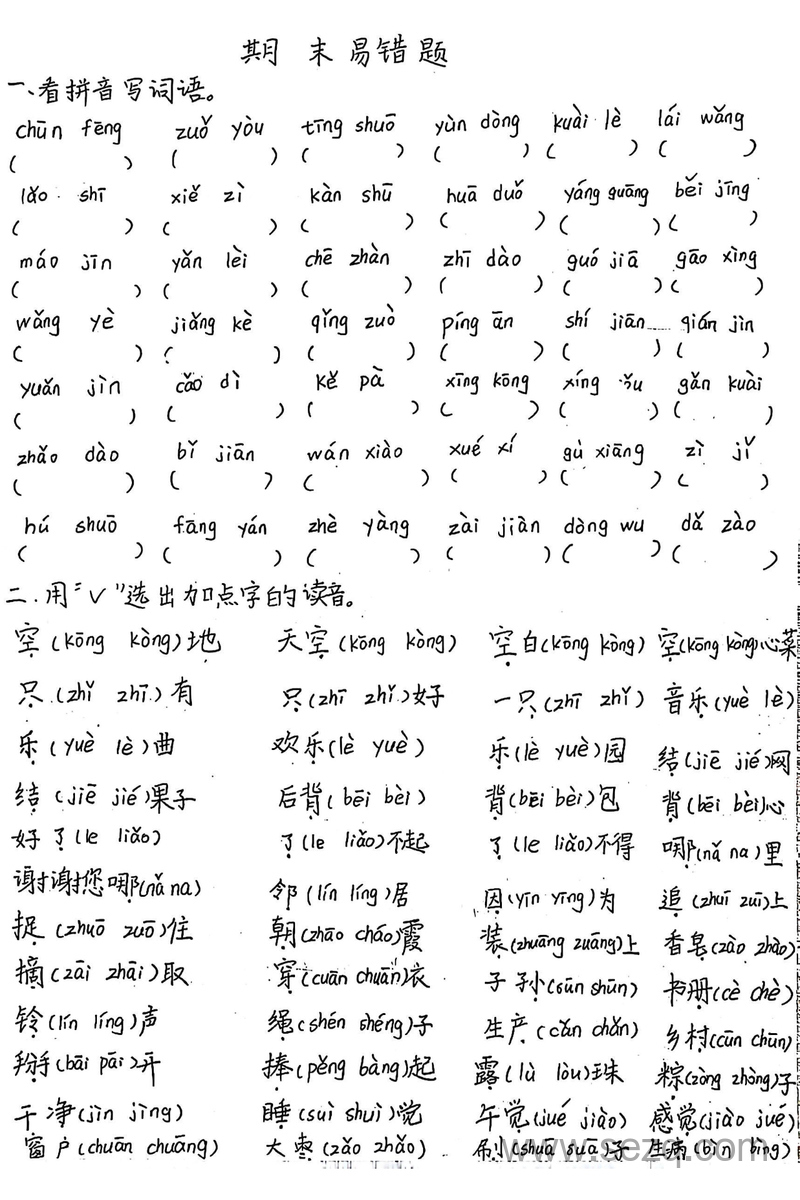 期 末 易错题
一、看拼音写词语。
chūn fēng zuǒ yòu tīng shuō yùn dòng kuài lè lái wǎng
( ) ( ) ( ) ( ) ( ) ( )
lǎo shī xiě zì kàn shū huā duǒ yáng guāng běi jīng
( ) ( ) ( ) ( ) ( ) ( )
máo jīn yǎn lèi chē zhàn zhī dào guó jiā gāo xìng
( ) ( ) ( ) ( ) ( ) ( )
wǎng yè jiǎng kè qǐng zuò píng ān shí jiān qián jìn
( ) ( ) ( ) ( ) ( ) ( )
yuǎn jìn cǎo dì kě pà xīng kōng xíng zǒu gǎn kuài
( ) ( ) ( ) ( ) ( ) ( )
zhǎo dào bǐ jiān wán xiào xué xí gù xiāng zì jǐ
( ) ( ) ( ) ( ) ( ) ( )
hú shuō fāng yán zhè yàng zài jiàn dòng wu dǎ zào
( ) ( ) ( ) ( ) ( ) ( )
二.用"√"选出加点字的读音。
空(kōng kòng)地 天空(kōng kòng) 空白(kōng kòng) 空(kōng kòng)心菜
只(zhǐ zhī)有 只(zhī zhǐ)好 一只(zhī zhǐ) 音乐(yuè lè)
乐(yuè lè)曲 欢乐(lè yuè) 乐(lè yuè)园 结(jiē jié)网
结(jiē jié)果子 后背(bēi bèi) 背(bēi bèi)包 背(bēi bèi)心
好了(le liǎo) 了(le liǎo)不起 了(le liǎo)不得 哪(nǎ na)里
谢谢您哪(nǎ na) 邻(lín líng)居 因(yīn yīng)为 追(zhuī zuī)上
捉(zhuō zuō)住 朝(zhāo cháo)霞 装(zhuāng zuāng)上 香皂(zào zhào)
摘(zāi zhāi)取 穿(cuān chuān)衣 子孙(sūn shūn) 卡册(cè chè)
铃(lín líng)声 绳(shén shéng)子 生产(cǎn chǎn) 乡村(cūn chūn)
掰(bāi pāi)开 捧(pěng bàng)起 露(lù lòu)珠 粽(zòng zhòng)子
干净(jìn jìng) 睡(suì shuì)觉 午觉(jué jiào) 感觉(jiào jué)
窗户(chuān chuāng) 大枣(zǎo zhǎo) 刷(shuā suā)子 生病(bìn bìng)
www.sezq.com